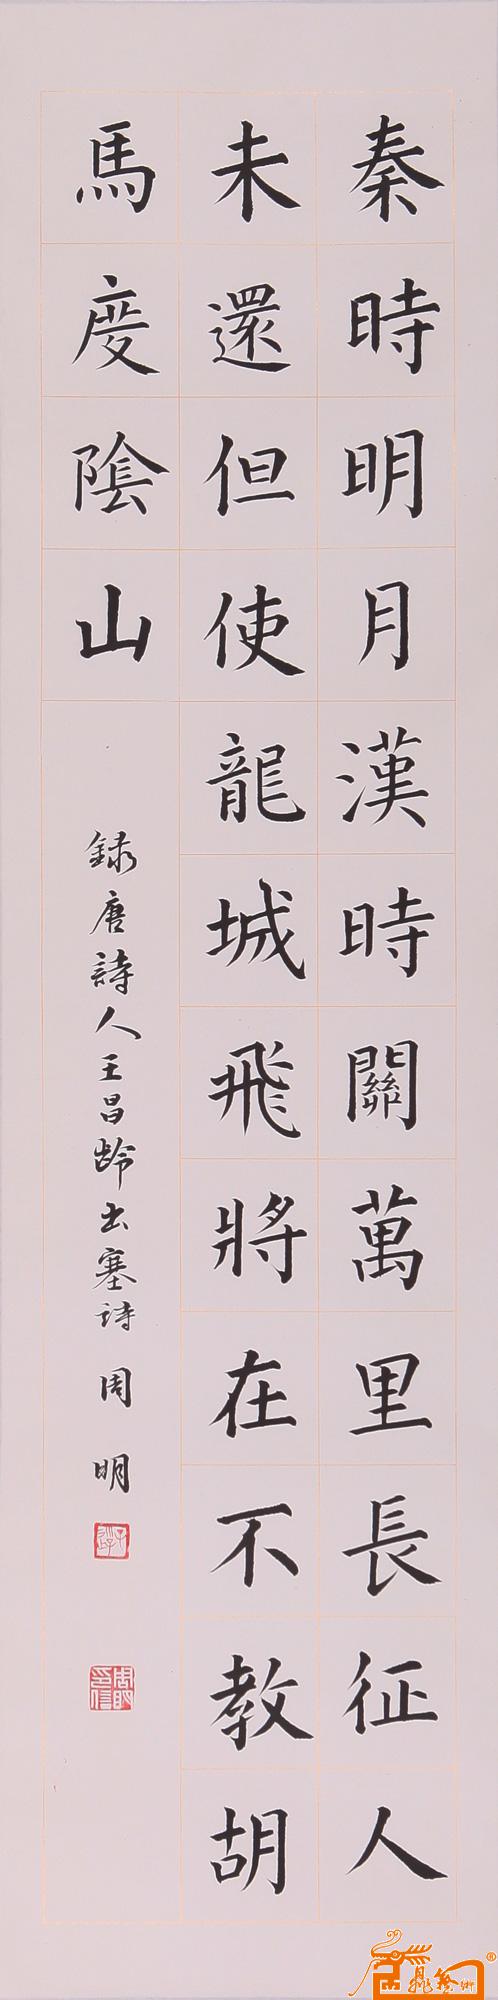 秦時明月漢時關萬里長征人
未還但使龍城飛將在不教胡
馬度陰山
録唐詩人王昌龄出塞詩 周明
周明印信